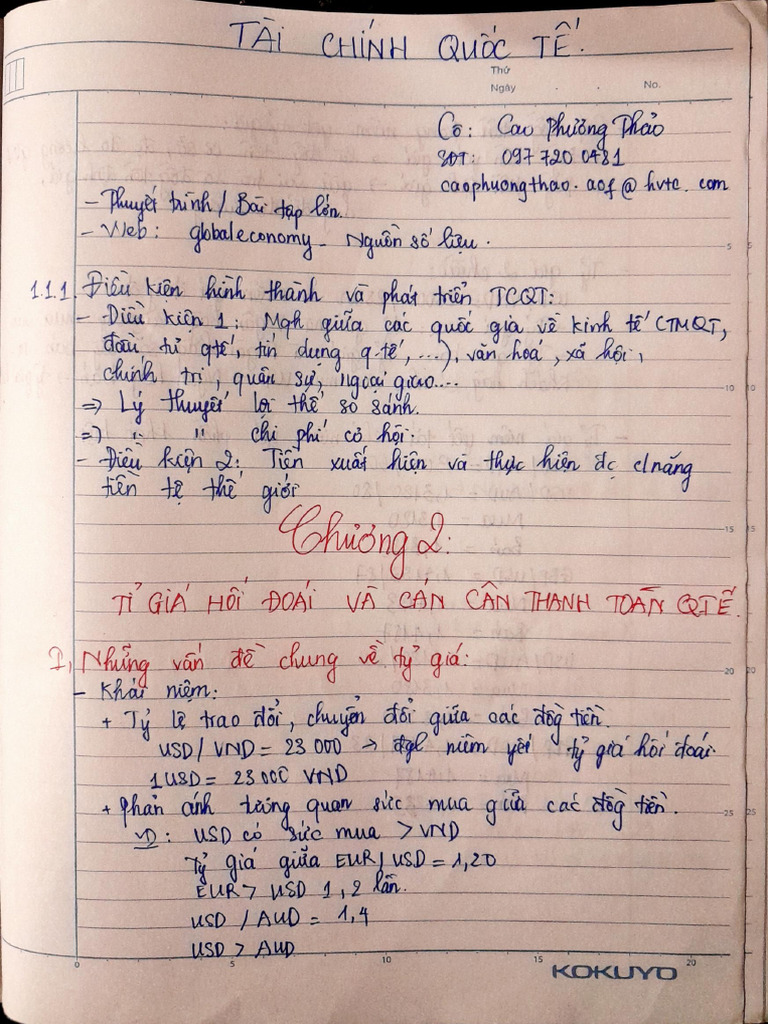 TÀI CHÍNH QUỐC TẾ.
Thứ
Ngày . . No.
Cô: Cao Phương Thảo
SĐT: 097 720 0481
caophuongthao.aof@hvtc.com
- Thuyết trình / Bài tập lớn.
- Web: globaleconomy - Nguồn số liệu.
1.1.1. Điều kiện hình thành và phát triển TCQT:
- Điều kiện 1: Mqh giữa các quốc gia về kinh tế (TMQT,
đầu tư qtế, tín dụng q.tế, ...), văn hoá, xã hội,
chính trị, quân sự, ngoại giao....
=> Lý thuyết lợi thế so sánh.
=> " " chi phí cơ hội.
- Điều kiện 2: Tiền xuất hiện và thực hiện đc c/năng
tiền tệ thế giới
Chương 2:
TỈ GIÁ HỐI ĐOÁI VÀ CÁN CÂN THANH TOÁN QTẾ.
I, Những vấn đề chung về tỷ giá:
- Khái niệm:
+ Tỷ lệ trao đổi, chuyển đổi giữa các đồg tiền.
USD/VND = 23 000 -> đgl niêm yết tỷ giá hối đoái.
1 USD = 23 000 VND
+ Phản ánh tương quan sức mua giữa các đồg tiền.
VD: USD có sức mua > VND
Tỷ giá giữa EUR/USD = 1,20
EUR > USD 1,2 lần.
USD / AUD = 1,4
USD > AUD
5
10
15
20
25
0 5 10 15 20
KOKUYO